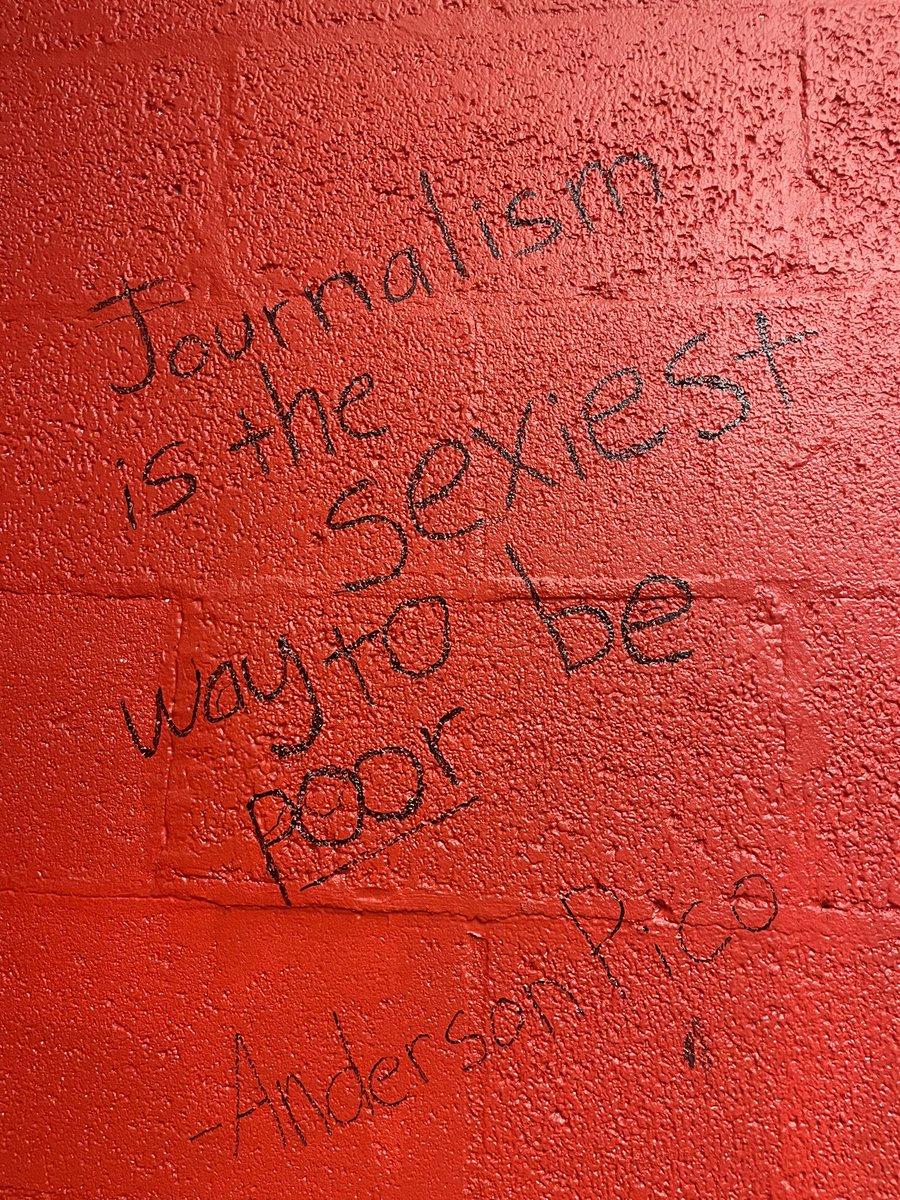 Journalism
is the sexiest
way to be
poor
-Anderson Pico